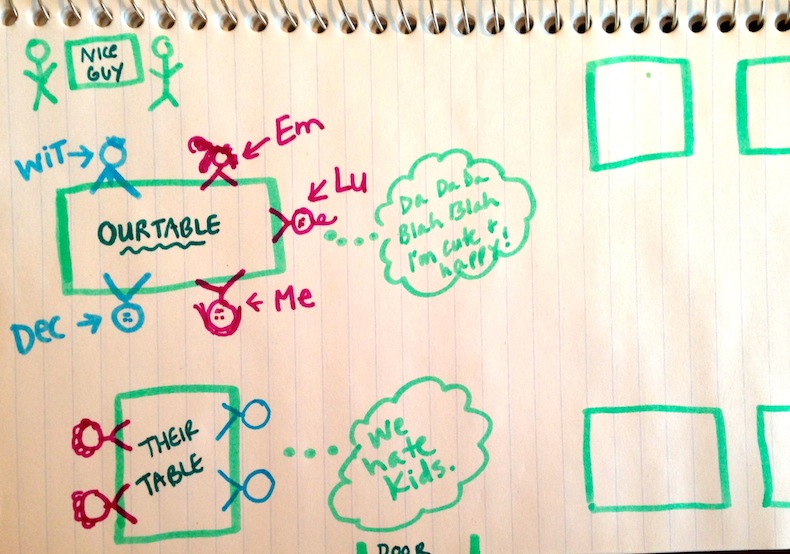 NICE
GUY
WIT
Em
Lu
OUR TABLE
Da Da Da
Blah Blah
I'm cute +
happy!
Dec
Me
THEIR
TABLE
We
hate
Kids.
DOOR